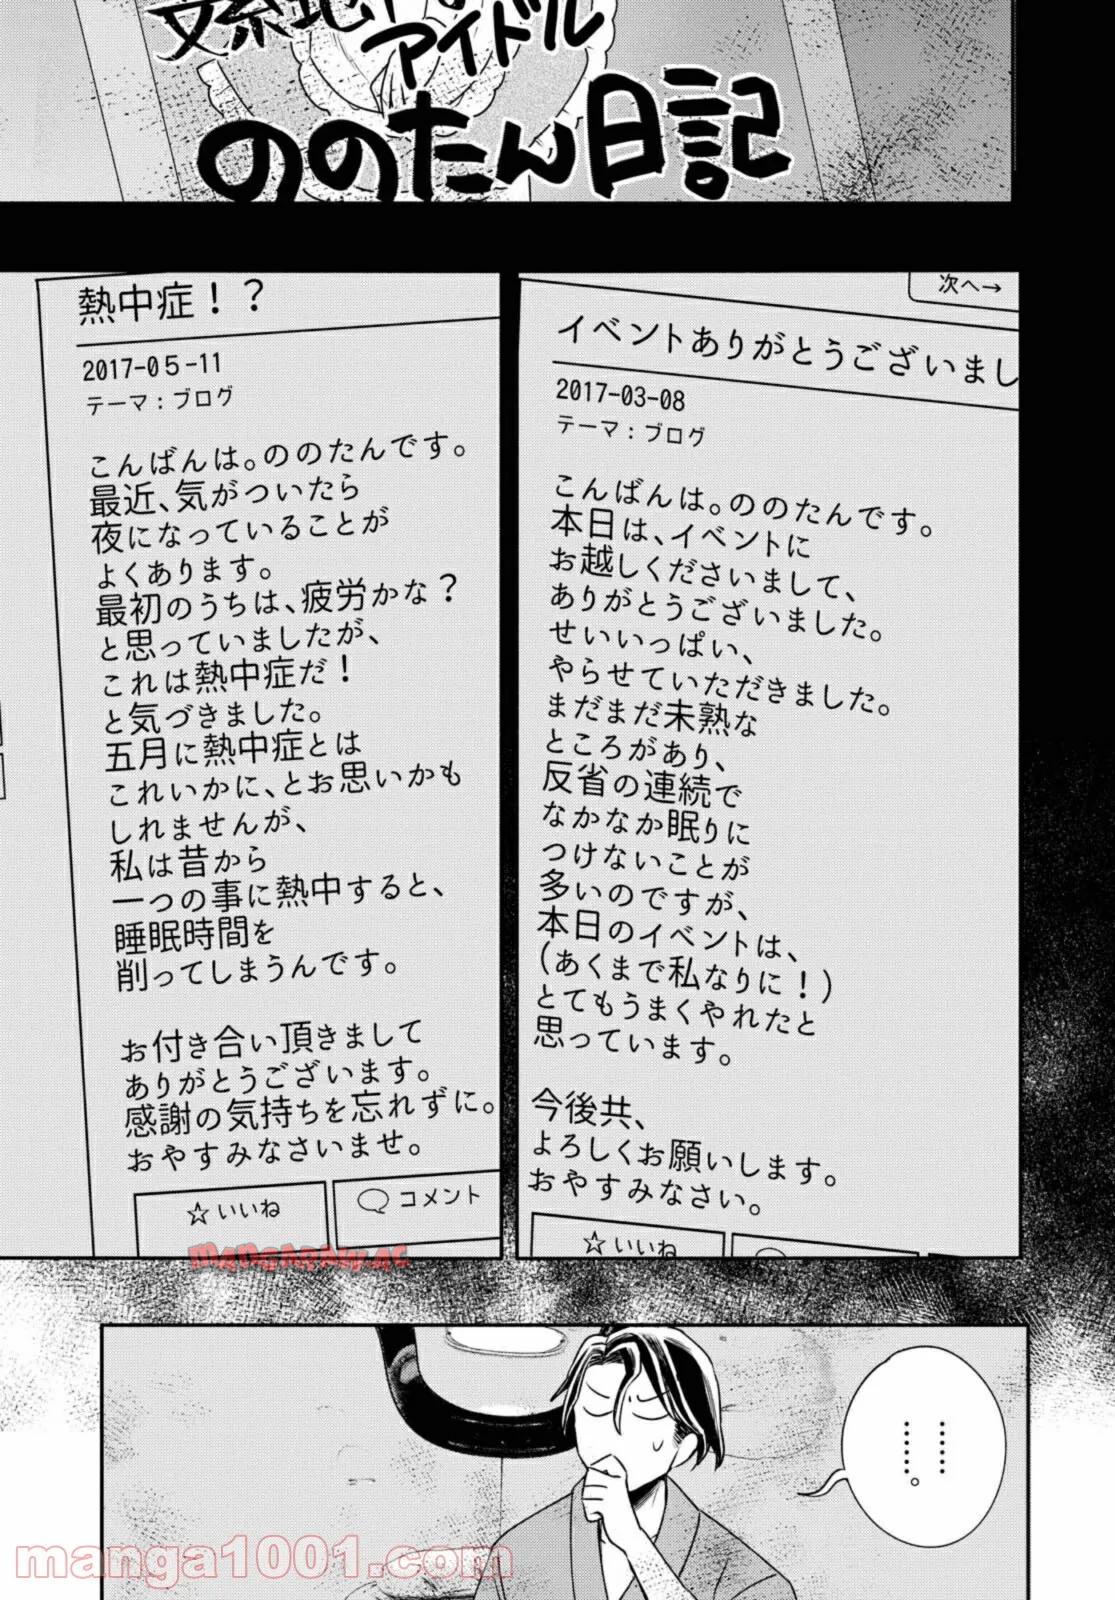 文系地下
アイドル
ののたん日記
次へ→
イベントありがとうございまし
2017-03-08
テーマ：ブログ
こんばんは。ののたんです。
本日は、イベントに
お越しくださいまして、
ありがとうございました。
せいいっぱい、
やらせていただきました。
まだまだ未熟な
ところがあり、
反省の連続で
なかなか眠りに
つけないことが
多いのですが、
本日のイベントは、
(あくまで私なりに！)
とてもうまくやれたと
思っています。
今後共、
よろしくお願いします。
おやすみなさい。
☆いいね
熱中症！？
2017-05-11
テーマ：ブログ
こんばんは。ののたんです。
最近、気がついたら
夜になっていることが
よくあります。
最初のうちは、疲労かな？
と思っていましたが、
これは熱中症だ！
と気づきました。
五月に熱中症とは
これいかに、とお思いかも
しれませんが、
私は昔から
一つの事に熱中すると、
睡眠時間を
削ってしまうんです。
お付き合い頂きまして
ありがとうございます。
感謝の気持ちを忘れずに。
おやすみなさいませ。
☆いいね
コメント
MANGARAW.AC
………。
manga1001.com